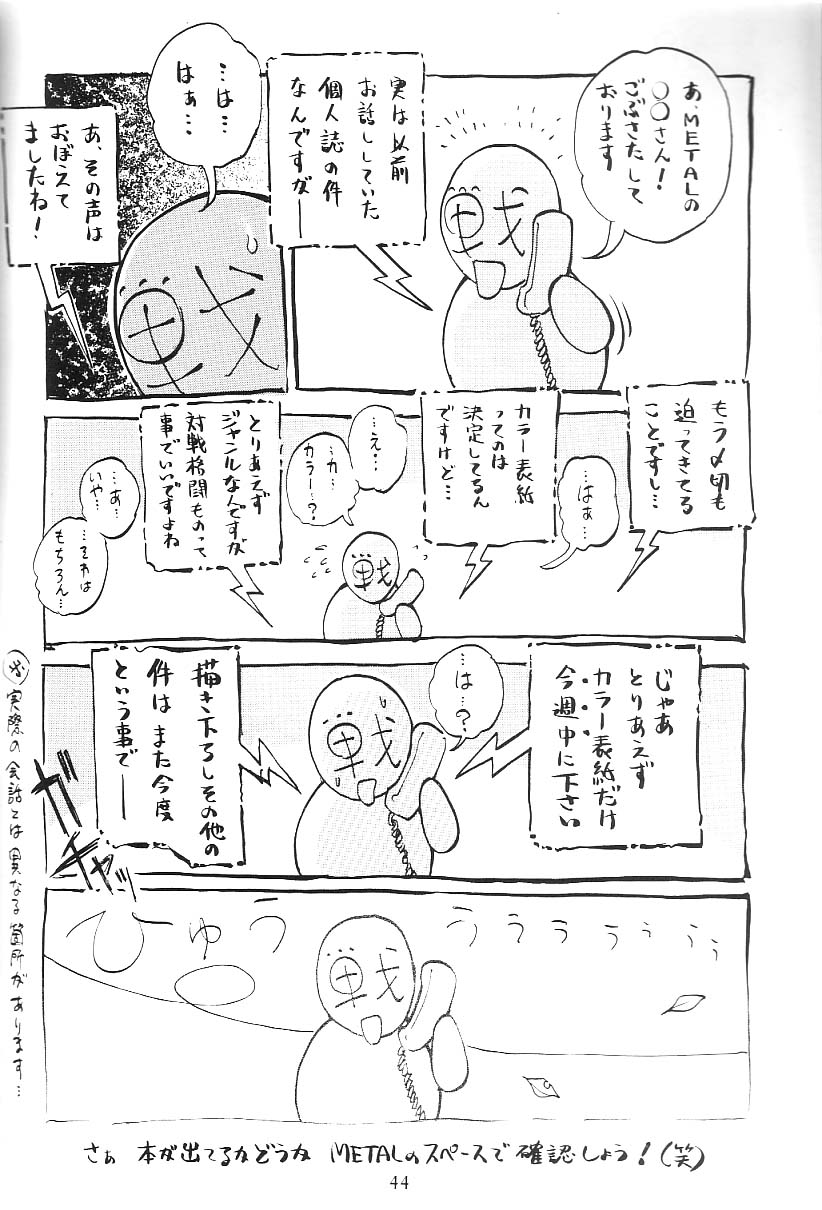 あ、METALの
○○さん!
ごぶさたして
おります
実は以前
お話ししていた
個人誌の件
なんですがー
…は…
はぁ…
あ、その声は
おぼえて
ましたね!
戦
戦
もう〆切も
迫ってきてる
ことですし…
…はぁ…
カラー表紙
ってのは
決定してるん
ですけど…
…え…
…カ…
カラー…?
とりあえず
ジャンルなんですが
対戦格闘ものって
事でいいですよね
…あ…
いや…
…それは
もちろん…
戦
じゃあ
とりあえず
カラー表紙だけ
今週中に下さい
…は…?
描き下ろしその他の
件はまた今度
という事でー
戦
ガチャッ
ひゅううううううぅぅぅ
戦
※実際の会話とは異なる箇所があります…
さぁ 本が出てるかどうか METALのスペースで確認しよう!(笑)
44